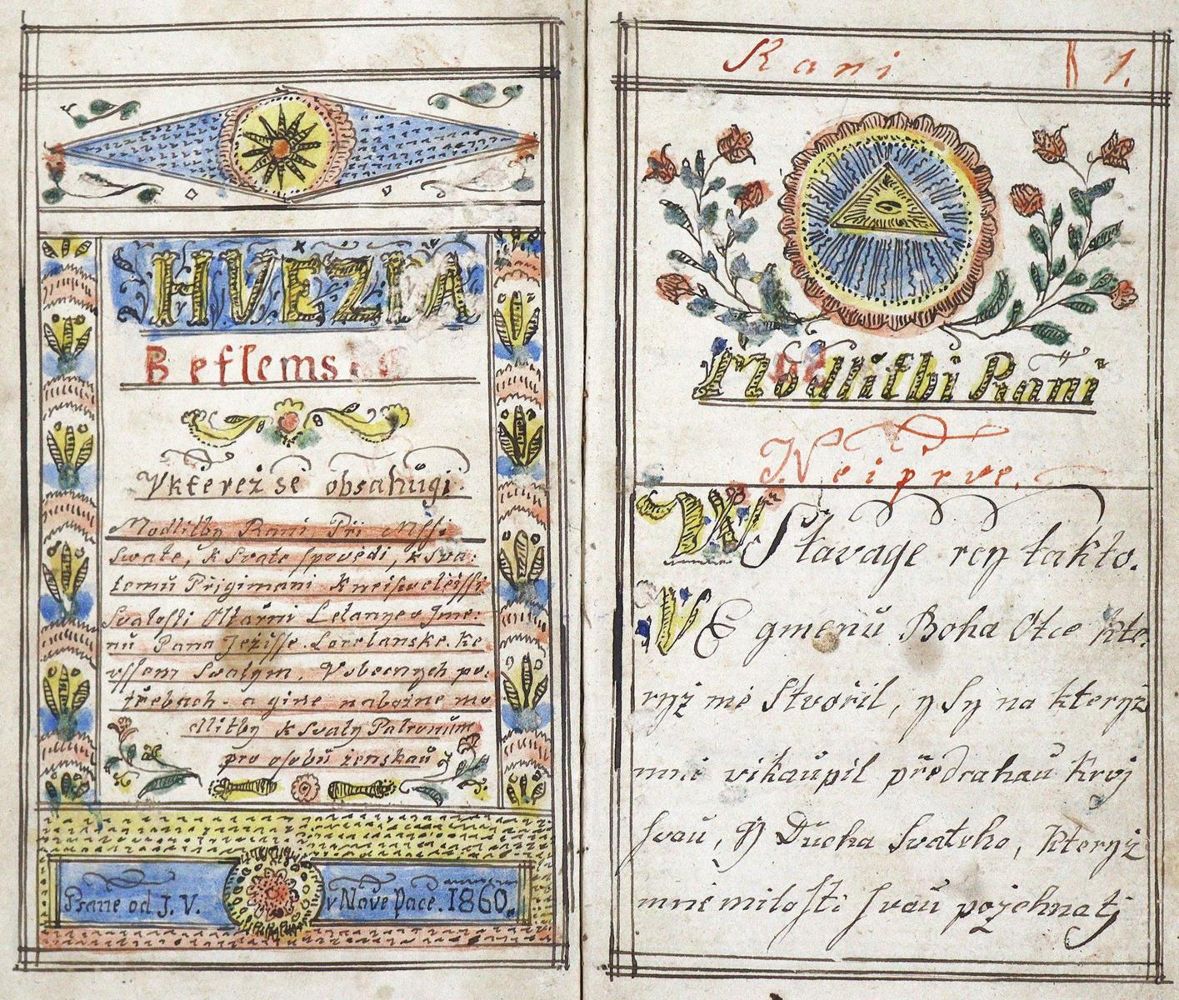 HVEZIA
Beflems
Vkterež se obsahůgi
Modlitby Rani Při Mssi
Swate, k Svate spovědi, k Sva-
temů Přigimani k neisvetěissi
Svatosti Oltářni Letanye o gme-
nů Pana Ježisse. Loretanske. ke
vssem Svatym. Vobecnych po-
třebach. a gine nabožne mo
dlitby k Svatÿ Patronům
pro osobů ženskaů
Psane od J. V. v Nove Pace. 1860.
Rani 1.
Modlitbi Rani
Neiprve.
WStavage rcy takto.
VE gmenů Boha Otce kte-
ryž mě Stvořil, y Sy na kteryž
mně vikaupil předrahaů Krvj
svaů, Y Ducha Svateho, kteryž
mně milosti svaů požehnatj